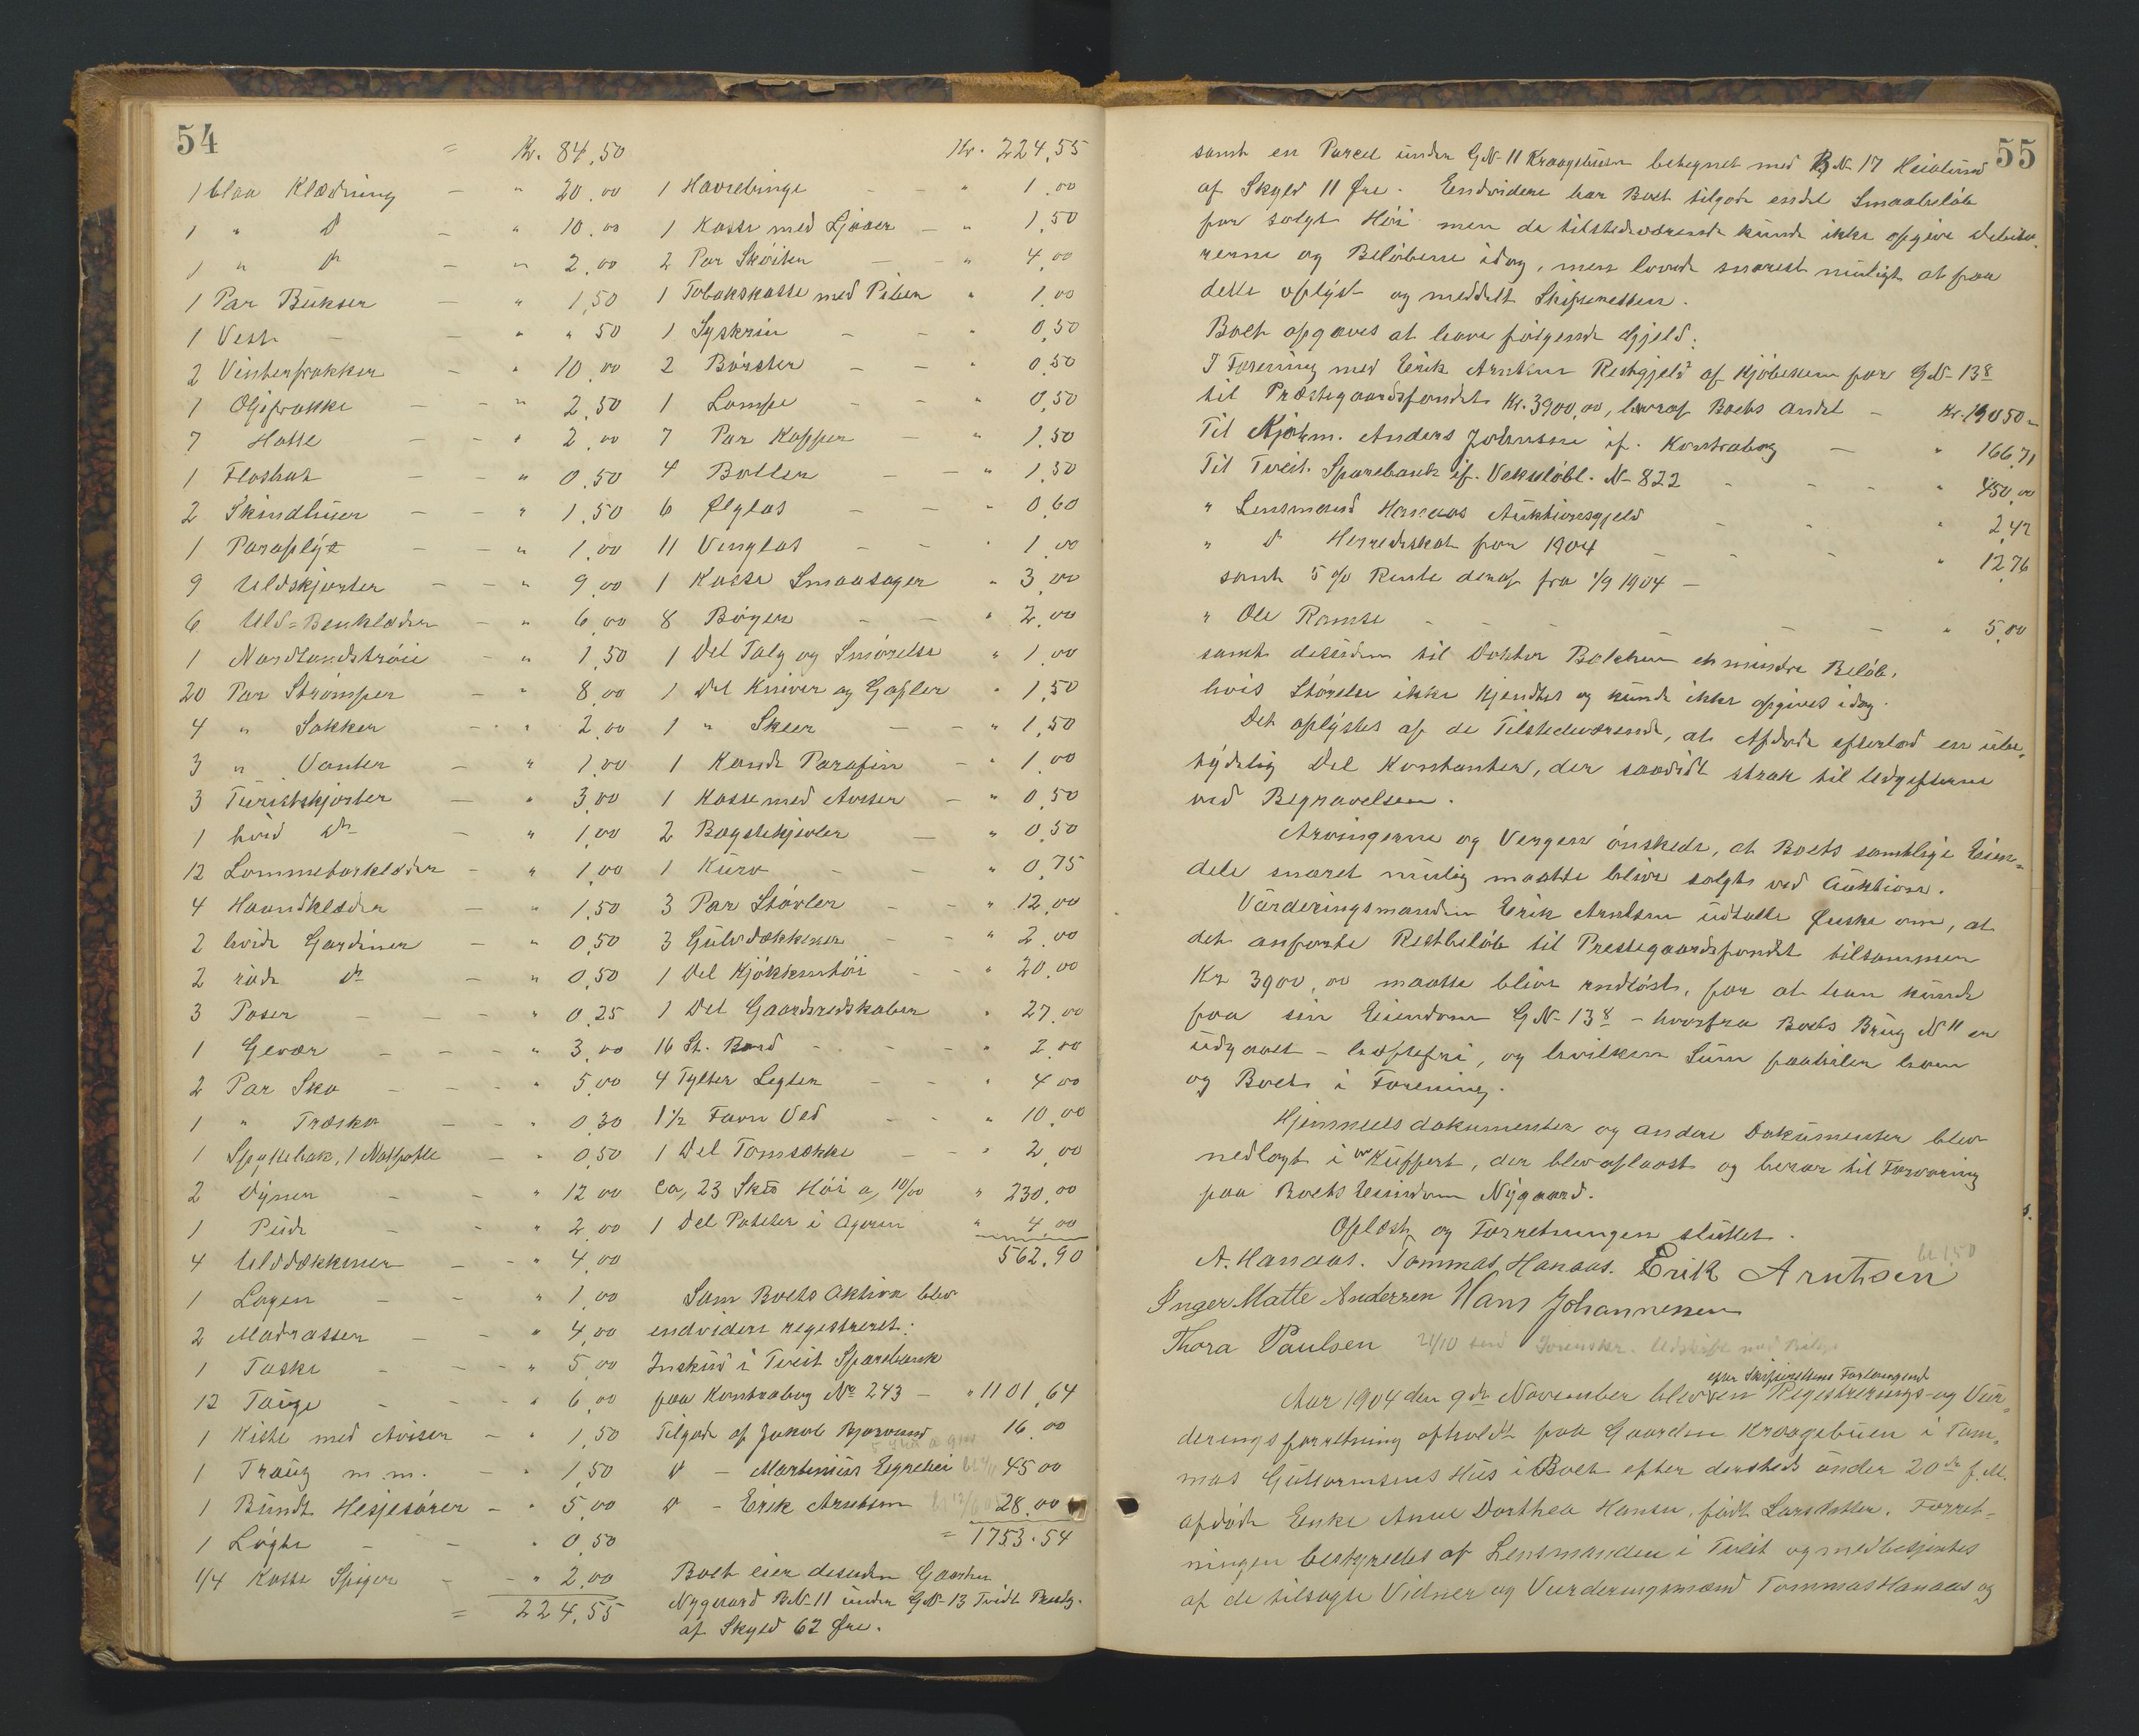 54
= Kr. 84,50
1 blaa Klædning — " 20.00
1 " D — " 10.00
1 " D — " 2.00
1 Par Bukser — " 1,50
1 Vest — " " 50
2 Vinterfrakker — " 10.00
1 Oljefrakke — " 2,50
7 Hatte — " 2.00
1 Floshat — " 0,50
2 Skindluer — " 1,50
1 Paraply — " 1,00
9 Uldskjorter — " 9,00
6 Uld=Benklæder — " 6,00
1 Nordlandstrøie — " 1,50
20 Par Strømper — " 8,00
4 " Sokker — " 2,00
3 " Vanter — " 1,00
3 Turistskjorter — " 3,00
1 hvid Do — " 1,00
12 Lommetørklæder — " 1,00
4 Haandklæder — " 1,50
2 hvide Gardiner — " 0,50
2 røde Do — " 0,50
3 Poser — " 0,25
1 Gevær — " 3,00
2 Par Sko — " 5,00
1 " Træsko — " 0,30
1 Spyttebak, 1 Natpotte — " 0,50
2 Dyner — " 12,00
1 Pude — " 2,00
4 Ulddækkener — " 4,00
1 Lagen — " 1,00
2 Madrasser — " 4,00
1 Taske — " 5,00
12 Tøige — " 6,00
1 Kiste med Aviser — " 1,50
1 Traug m.m. — " 1,50
1 Bundt Hesjesører — " 5,00
1 Løgte — " 0,50
1/4 Kasse Spiger — " 2,00
= 224,55
Kr. 224,55
1 Havrebinge — " 1.00
1 Kasse med Ljaaer — " 1,50
2 Par Skøiter — " 4,00
1 Tobakskasse med Piber " 1,00
1 Syskrin — " 0,50
2 Børster — " 0,50
1 Lampe — " 0,50
7 Par Kopper — " 1,50
4 Boller — " 1,30
6 Ølglas — " 0,60
11 Vinglas — " 1,00
1 Kasse Smaasager " 3,00
8 Bøger — " 2,00
1 Del Talg og Smørelse " 1,00
1 Del Kniver og Gafler " 1,50
1 " Skeer — " 1,50
1 Kande Parafin — " 1,00
1 Kasse med Aviser — " 0,50
2 Bøgstekjevler — " 0,50
1 Kurv — " 0,75
3 Par Støvler — " 12,00
3 Gulvdækkener — " 2,00
1 Del Kjøkkentøi — " 20,00
1 Del Gaardsredskaber " 27,00
16 St. Bord — " 2,00
4 Tylter Legter — " 4,00
1 1/2 Favn Ved — " 10,00
1 Del Tomsække — " 2,00
Ca, 23 Skto Høi a, 10/00 " 230,00
1 Del Poteter i Ageren " 4,00
562,90
Som Boets Aktiva blev
endvidere registreret:
Inskud i Tveit Sparebank
paa Kontrabog No 243 — " 1101,64
Tilgode af Jakob Bjorvand 16.00
D — Martinius 45.00
D — Erik Arntsen 28.00
= 1753.54
Boet eier desuden Gaarden
Nygaard B.N. 11 under G.N. 13 Tveidt Prestg.
af Skyld 62 Øre.
55
samt en Parcel under G.N. 11 Kraagebuen betegnet med B.N. 17 Heialund
af Skyld 11 Øre. Endvidere har Boet tilgode endel Smaabeløb
for solgt Høi men de tilstedeværende kunde ikke opgive Debito-
rerne og Beløbene idag, men lovede snarest muligt at faa
dette oplyst og meddelt Skifteretten.
Boet opgaves at have følgende Gjeld:
I Forening med Erik Arntsen Restgjeld af Kjøbesum for G.N. 13 8
til Præstegaardsfondet Kr. 3900,00, hvoraf Boets Andel — Kr. 19050 "
Til Kjøbm. Anders Johnsen if. Kontrabog — " 166,71
Til Tveit Sparebank if. Vekselobl. N. 822 — " 450,00
" Lensmand Hanaas Auktionsgjeld — " 2,42
" D Herredsskat for 1904 — " 12,76
samt 5 % Rente deraf fra 1/9 1904 —
" Ole Ramse — " 5,00
samt desuden til Doktor et mindre Beløb,
hvis Størrelse ikke kjendtes og kunde ikke opgives idag.
Det oplystes af de Tilstedeværende, at Afdøde efterlod en ube-
tydelig Del Kontanter, der saavidt strak til Udgifterne
ved Begravelsen.
Arvingerne og Vergen ønskede, at Boets samtlige Eien-
dele snaret mulig maatte blive solgt ved Auktion.
Værderingsmanden Erik Arntsen udtalte Ønske om, at
det anførte Restbeløb til Prestegaardsfondet tilsammen
Kr 3900,00 maatte blive indløst, for at han kunde
faa sin Eiendom G.N. 13 8 — hvorfra Boets Brug N 11 er
udgaaet — heftefri, og hvilken Sum paahviler ham
og Boet i Forening.
Hjemmelsdokumenter og andre Dokumenter blev
nedlagt i en Kuffert, der blev aflaast og beror til Forvaring
paa Boets Eiendom Nygaard.
Oplæst og Forretningen sluttet.
A. Hanaas. Tommas Hanaas. Erik Arntsen
Inger Matte Andersen Hans Johannessen
Thora Paulsen 21/10 send
efter Skifterettens Forlangende
Aar 1904 den 9de November blev en Registrerings- og Vur-
deringsforretning afholdt paa Gaarden Kraagebuen i Tom-
mas Guttormsens Hus i Boet efter dersteds under 20de f.M.
afdøde Enke Anne Dorthea Hansen, født Larsdatter. Forret-
ningen bestyredes af Lensmanden i Tveit og medbetjentes
af de tilsagte Vidner og Vurderingsmænd Tommas Hanaas og